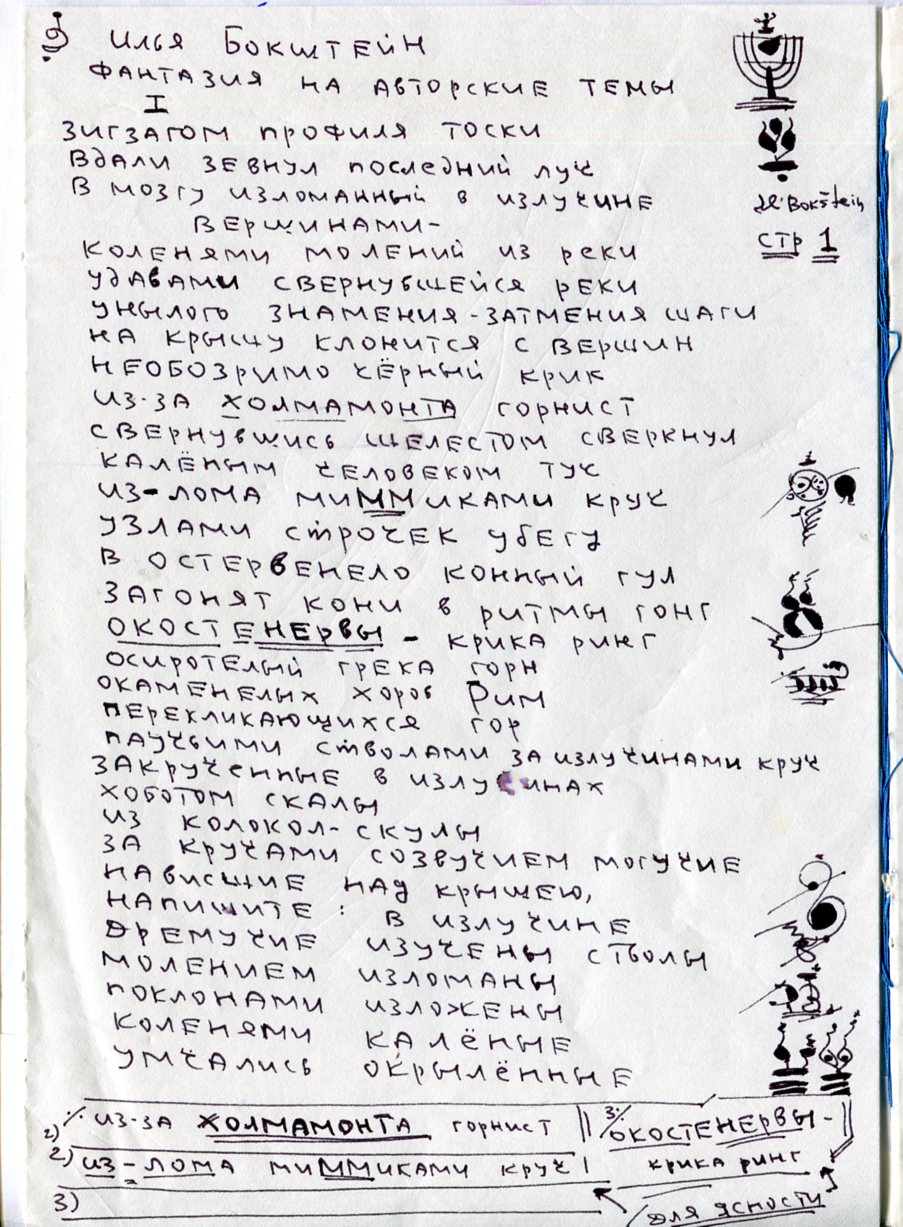 9
ИЛЬЯ БОКШТЕЙН
ФАНТАЗИЯ НА АВТОРСКИЕ ТЕМЫ
I
ЗИГЗАГОМ ПРОФИЛЯ ТОСКИ
ВДАЛИ ЗЕВНУЛ ПОСЛЕДНИЙ ЛУЧ
В МОЗГУ ИЗЛОМАННЫЙ В ИЗЛУЧИНЕ
ВЕРШИНАМИ-
КОЛЕНЯМИ МОЛЕНИЙ ИЗ РЕКИ
УДАВАМИ СВЕРНУВШЕЙСЯ РЕКИ
УНЫЛОГО ЗНАМЕНИЯ-ЗАТМЕНИЯ ШАГИ
НА КРЫШУ КЛОНИТСЯ С ВЕРШИН
НЕОБОЗРИМО ЧЁРНЫЙ КРИК
ИЗ-ЗА ХОЛМАМОНТА ГОРНИСТ
СВЕРНУВШИСЬ ШЕЛЕСТОМ СВЕРКНУЛ
КАЛЁНЫМ ЧЕЛОВЕКОМ ТУЧ
ИЗ-ЛОМА МИММИКАМИ КРУЧ
УЗЛАМИ СТРОЧЕК УБЕГУ
В ОСТЕРВЕНЕЛО КОННЫЙ ГУЛ
ЗАГОНЯТ КОНИ В РИТМЫ ГОНГ
ОКОСТЕНЕРВЫ - КРИКА РИНГ
ОСИРОТЕЛЫЙ ГРЕКА ГОРН
ОКАМЕНЕЛЫХ ХОРОВ РИМ
ПЕРЕКЛИКАЮЩИХСЯ ГОР
ПАУЧЬИМИ СТВОЛАМИ ЗА ИЗЛУЧИНАМИ КРУЧ
ЗАКРУЧЕННЫЕ В ИЗЛУЧИНАХ
ХОБОТОМ СКАЛЫ
ИЗ КОЛОКОЛ-СКУЛЫ
ЗА КРУЧАМИ СОЗВУЧИЕМ МОГУЧИЕ
НАВИСШИЕ НАД КРЫШЕЮ,
НАПИШИТЕ: В ИЗЛУЧИНЕ
ДРЕМУЧИЕ ИЗУЧЕНЫ СТВОЛЫ
МОЛЕНИЕМ ИЗЛОМАНЫ
ПОКЛОНАМИ ИЗЛОЖЕНЫ
КОЛЕНЯМИ КАЛЁНЫЕ
УМЧАЛИСЬ ОКРЫЛЁННЫЕ
Il'Bokštein
СТР 1
ИЗ-ЗА ХОЛМАМОНТА ГОРНИСТ
2) ИЗ-ЛОМА МИММИКАМИ КРУЧ!
3)
3% ОКОСТЕНЕРВЫ-
КРИКА РИНГ
ДЛЯ ЯСНОСТИ